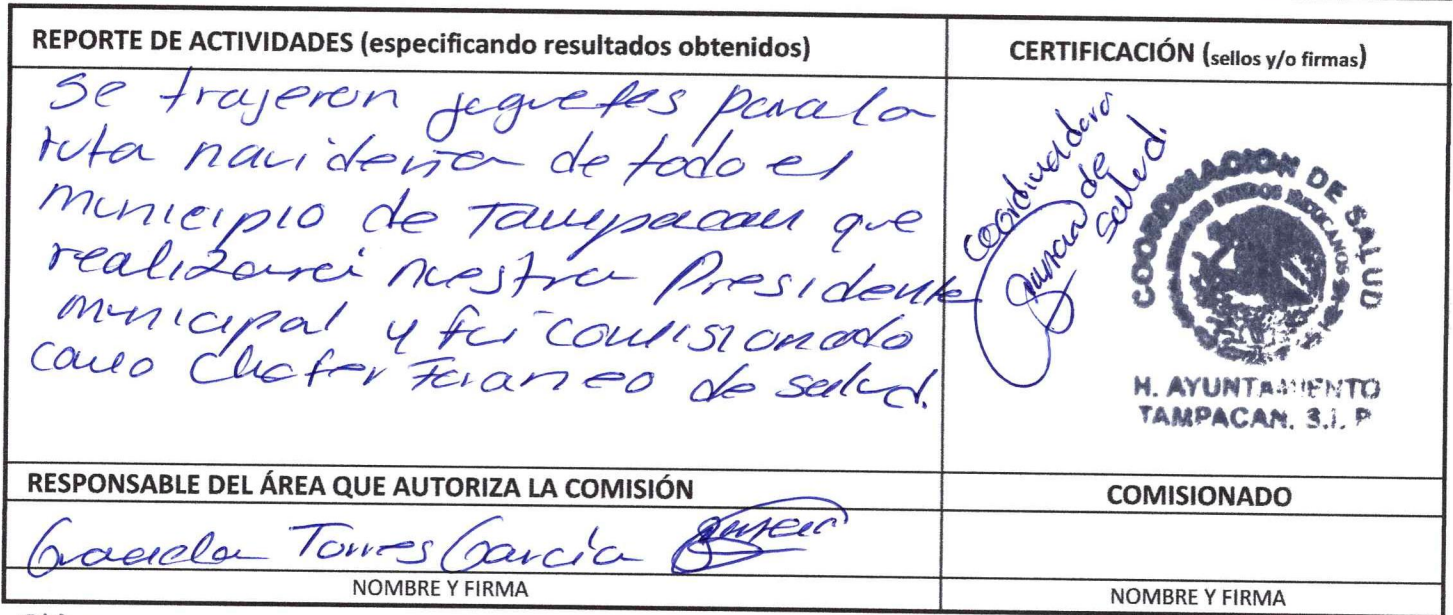 REPORTE DE ACTIVIDADES (especificando resultados obtenidos)
CERTIFICACIÓN (sellos y/o firmas)
Se trajeron juguetes para la
ruta navideña de todo el
municipio de Tampacan que
realizará nuestra Presidente
municipal y fui comisionado
como Chofer Foraneo de salud.
Coordinadora
de
Salud.
COORDINACIÓN DE SALUD
ESTADOS UNIDOS MEXICANOS
H. AYUNTAMIENTO
TAMPACAN, S.L.P
RESPONSABLE DEL ÁREA QUE AUTORIZA LA COMISIÓN
COMISIONADO
Graciela Torres García
NOMBRE Y FIRMA
NOMBRE Y FIRMA